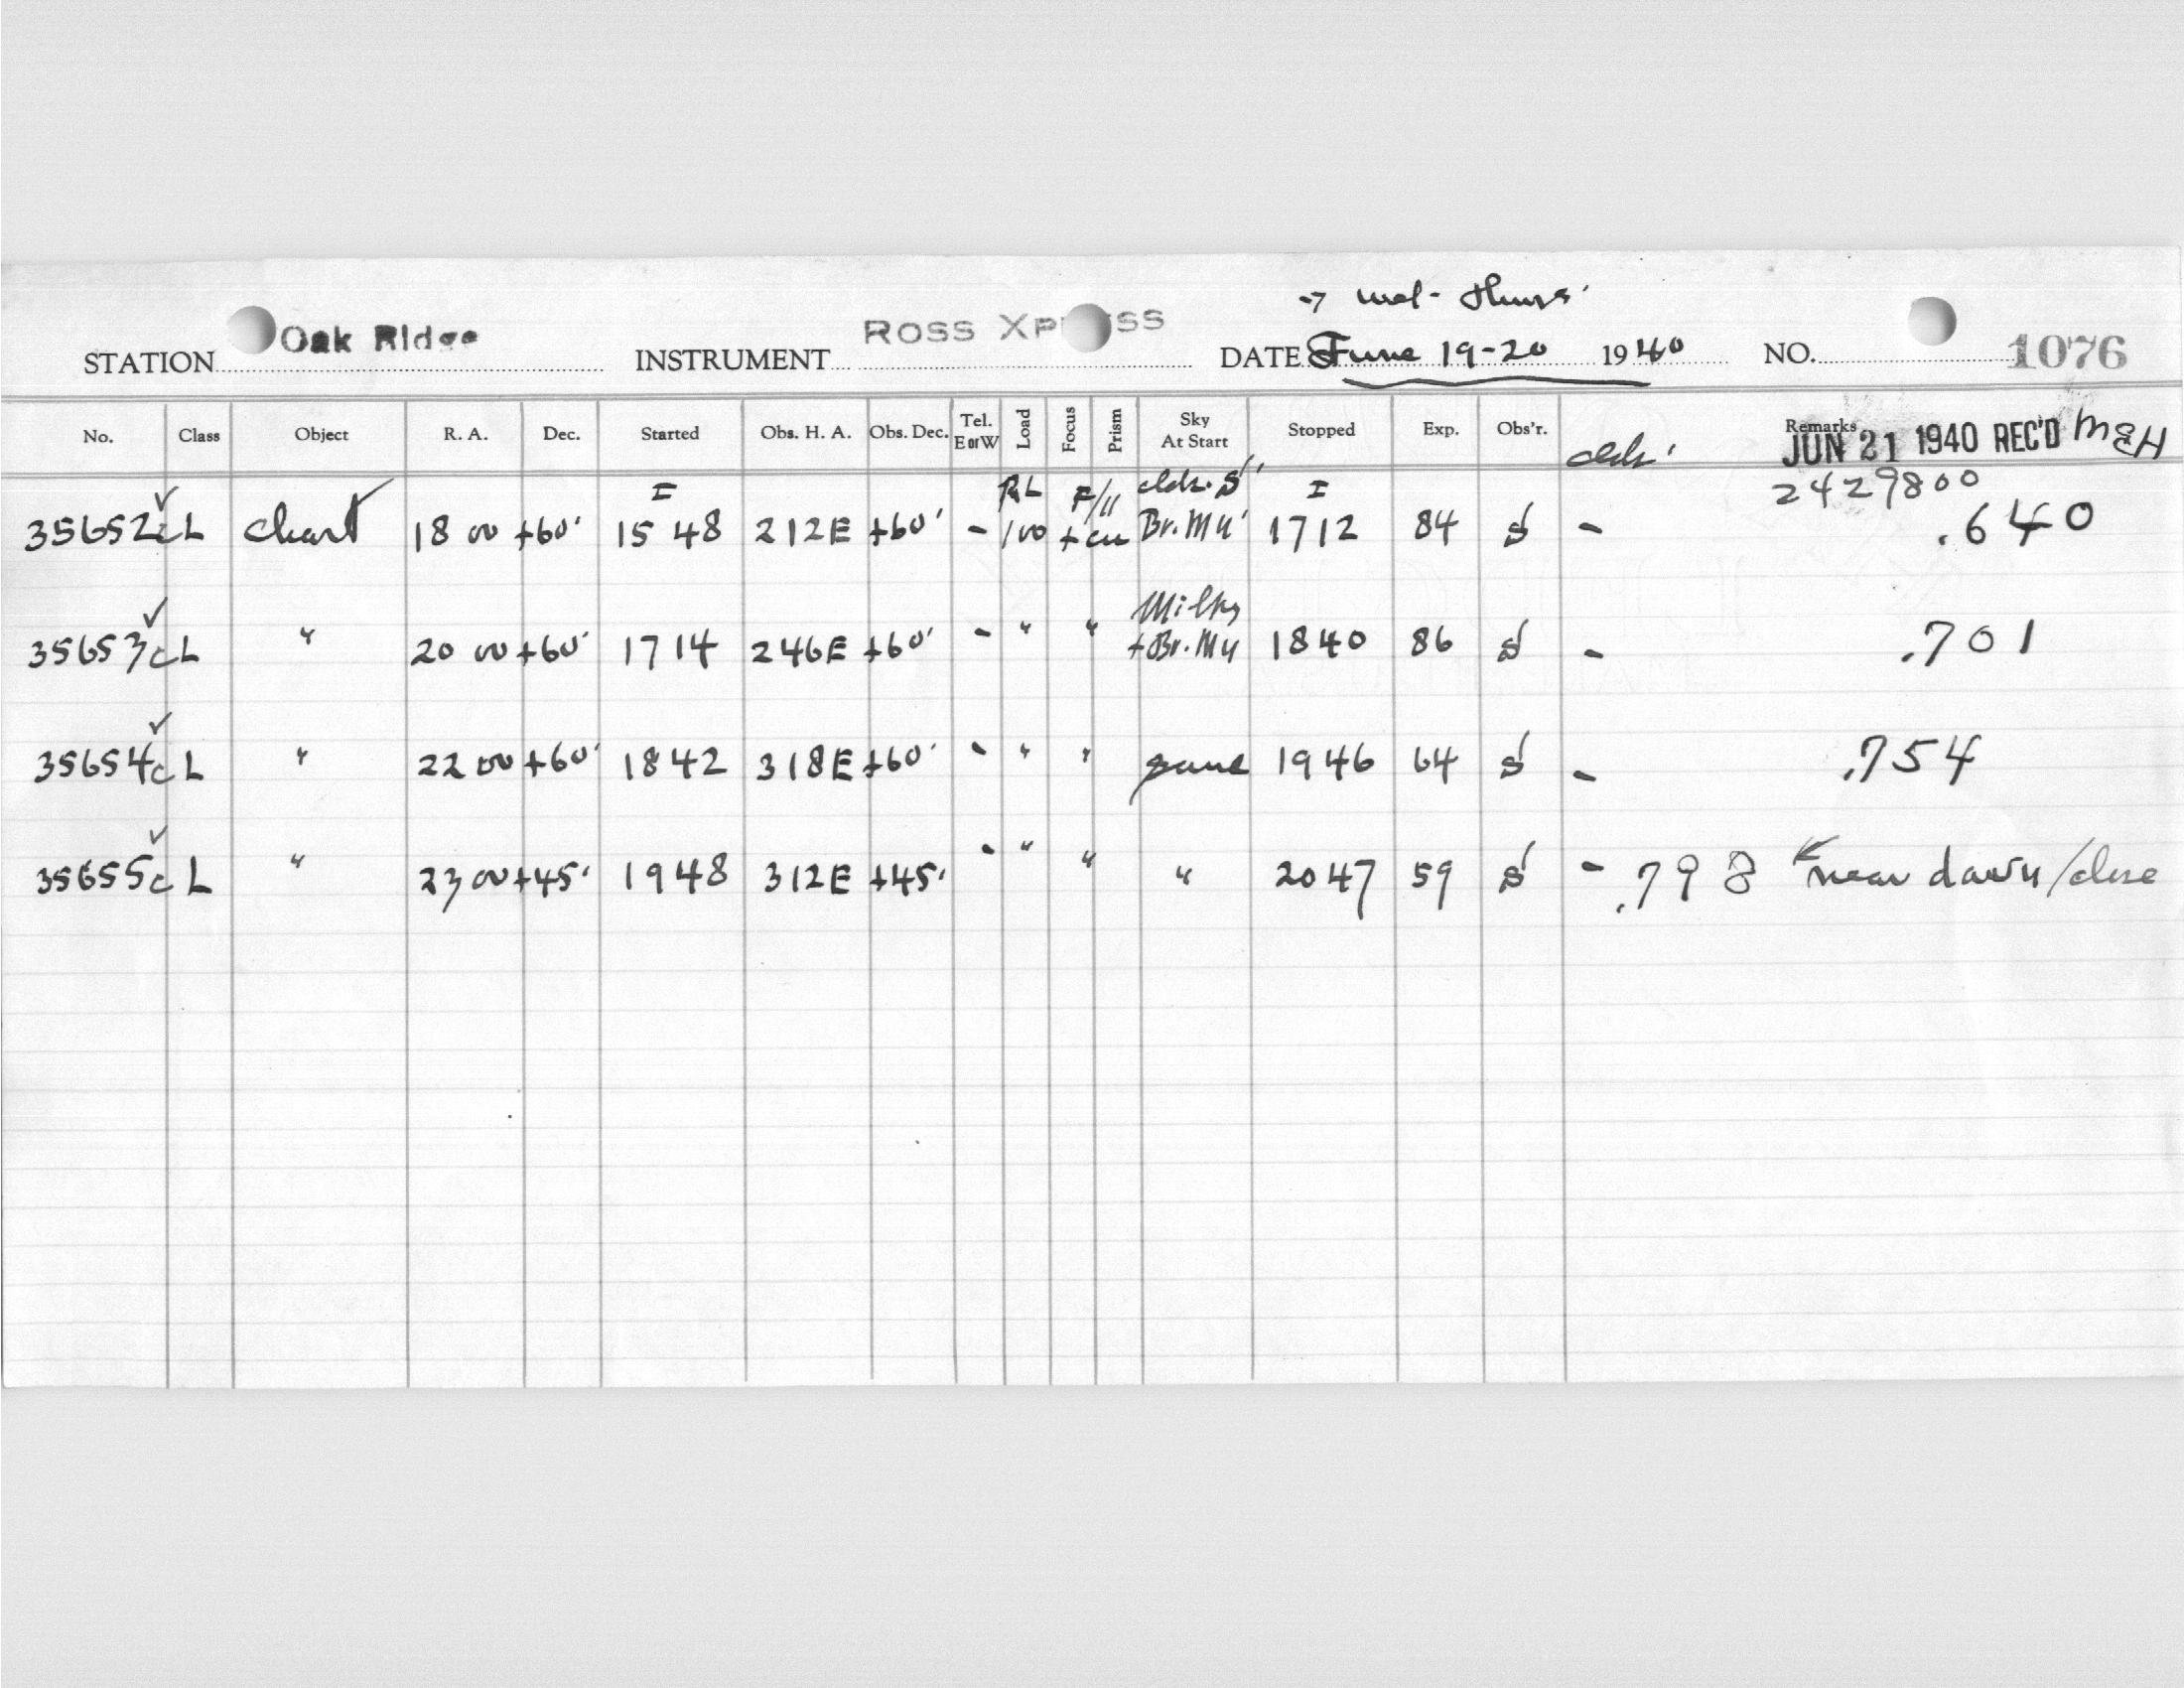 → Wed - Thurs'
STATION Oak Ridge INSTRUMENT ROSS XP SS DATE June 19-20 1940 NO. 1076
No. Class Object R. A. Dec. Started Obs. H. A. Obs. Dec. Tel. E or W Load Focus Prism Sky At Start Stopped Exp. Obs'r. Remarks
clds' JUN 21 1940 REC'D MEH
I RL F/11 clds. S' I 2429800
35652 c L Chart 18 00 +60' 15 48 212E +60' - 100 + cu Br. My' 1712 84 S - .640
Milky
35653 c L " 20 00 +60' 1714 246E +60' - " " + Br. My 1840 86 S - .701
35654 c L " 22 00 +60' 1842 318E +60' - " " same 1946 64 S - .754
35655 c L " 23 00 +45' 1948 312E +45' - " " " 2047 59 S - .798 near dawn/close